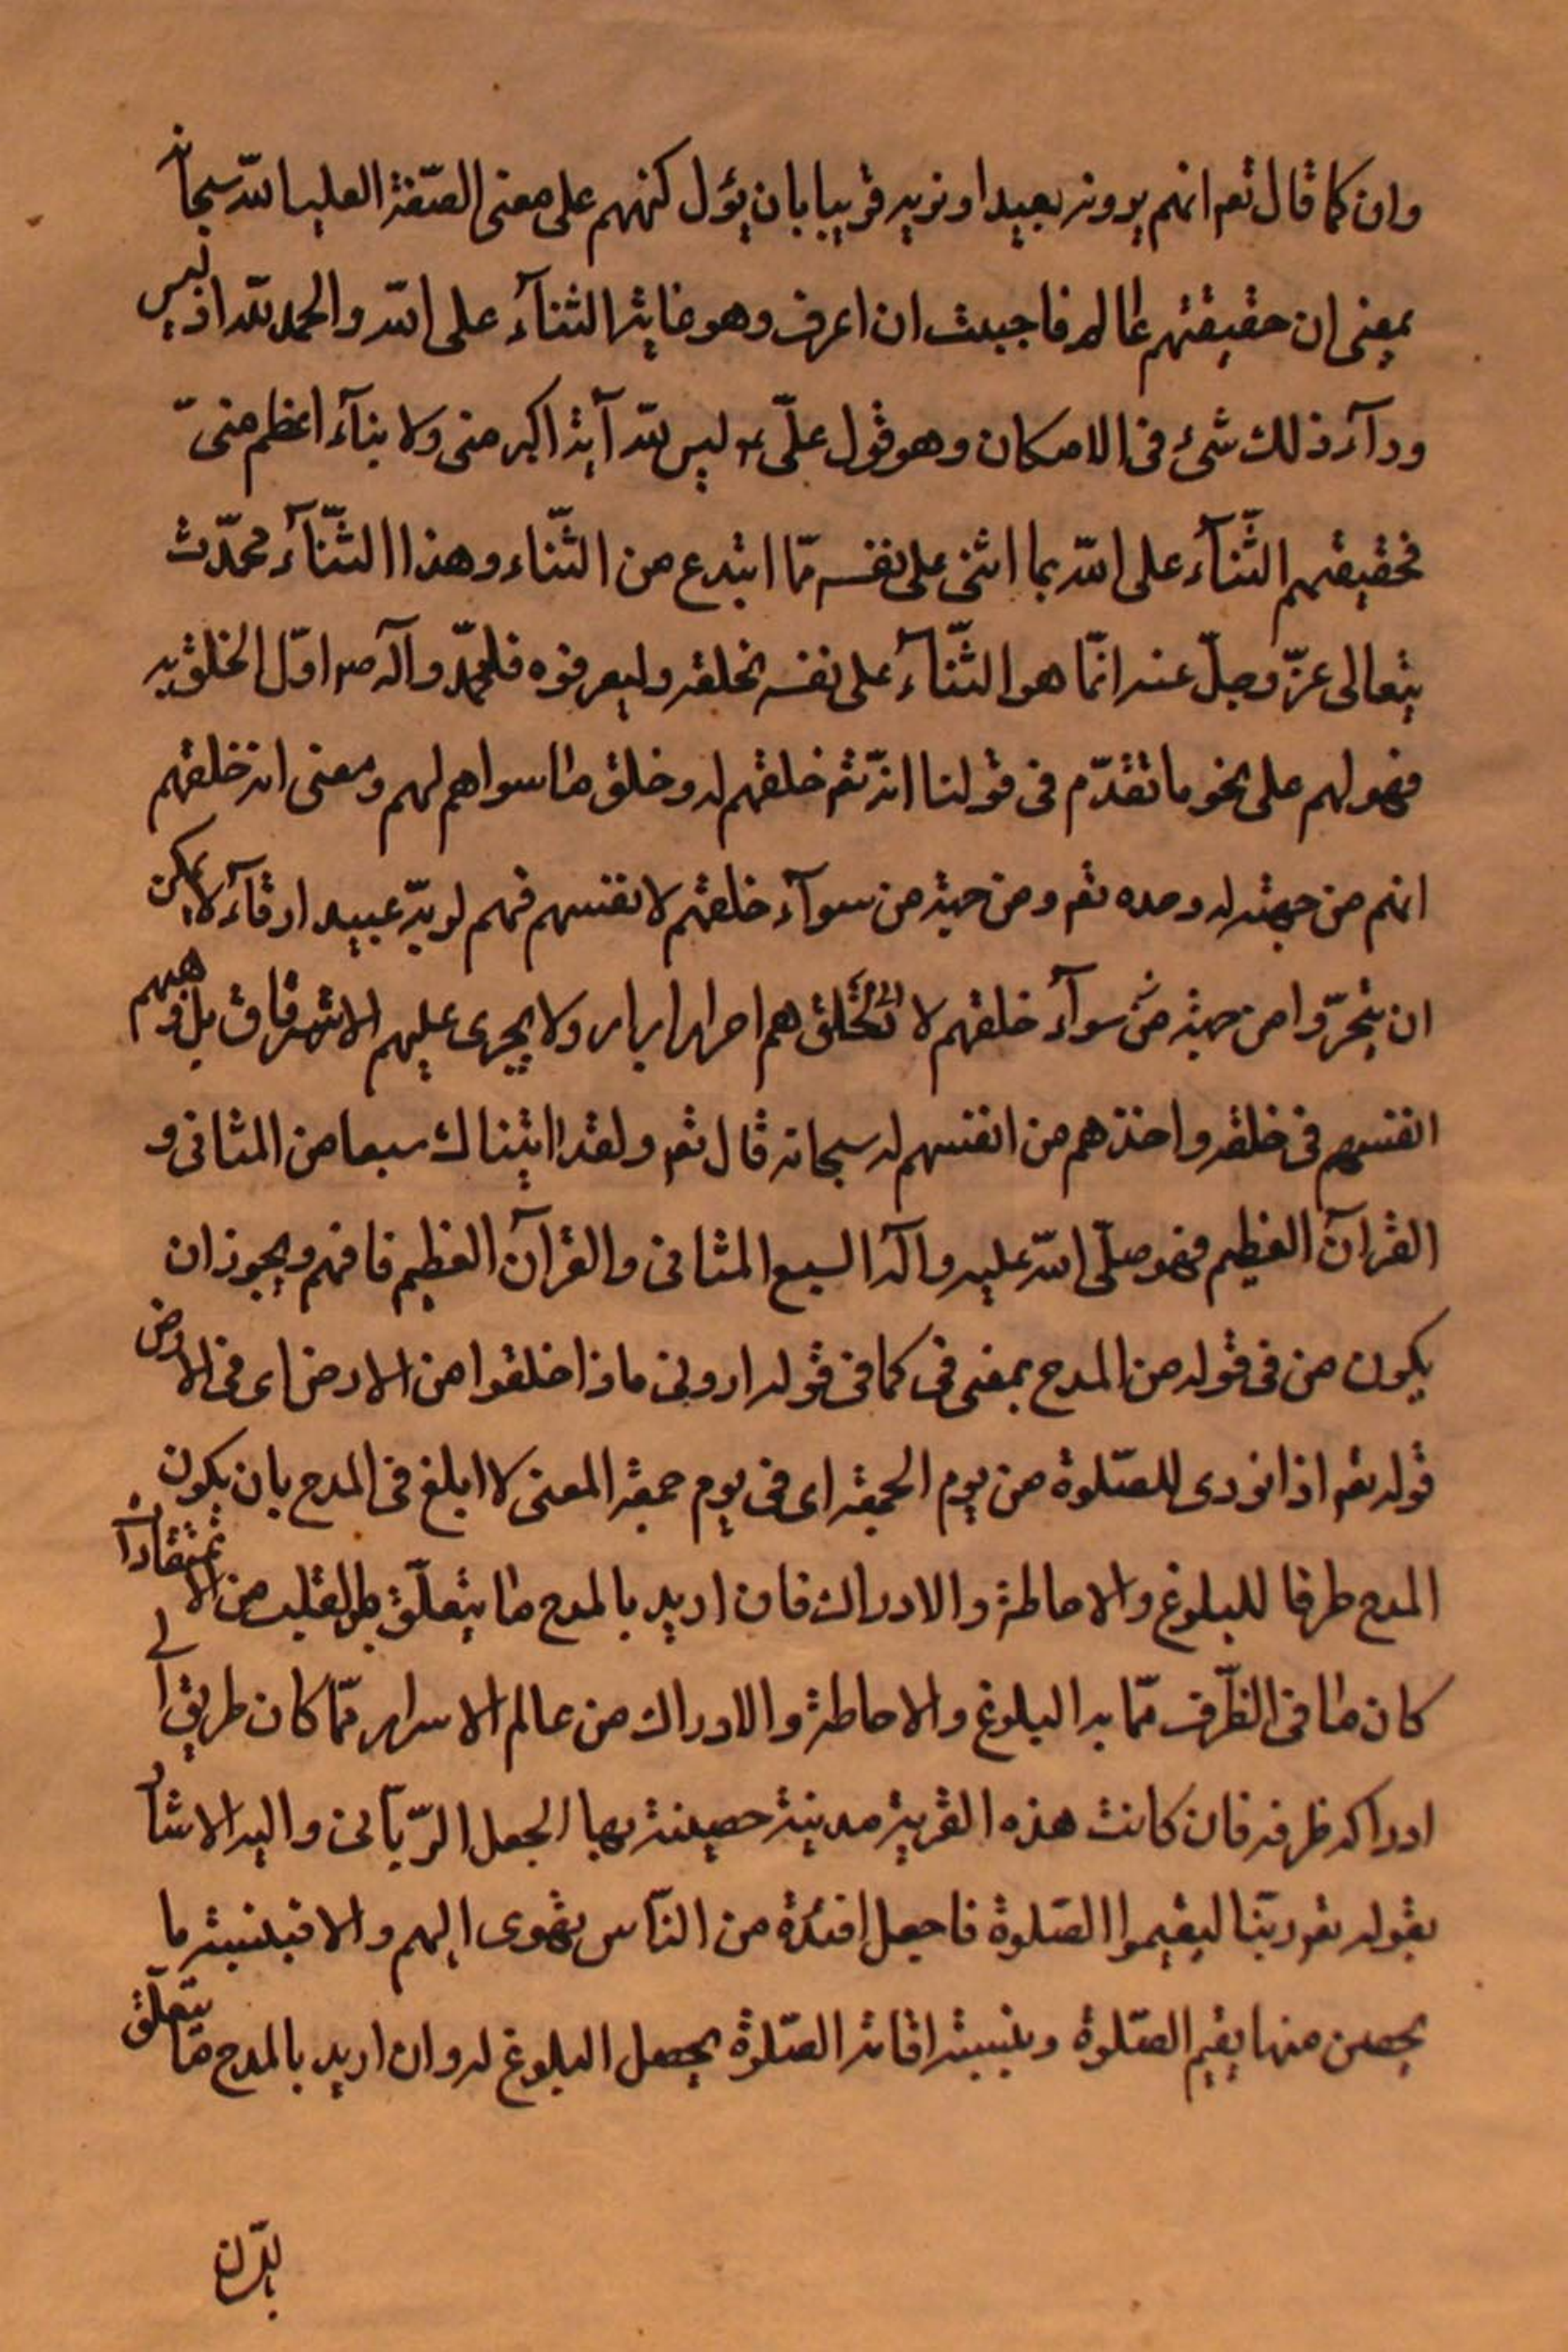 وان كما قال تعم انهم يرونه بعيدا ونريه قريبا بان يؤل كنههم على معنى الصّفة العليا لله سبحانه
بمعنى ان حقيقتهم عالم فاجبت ان اعرف وهو غاية الثناء على الله والحمد لله اذ ليس
ورآء ذلك شئ فى الامكان وهو قول علّى ع ليس لله آية اكبر منى ولا بنآء اعظم منىّ
فحقيقتهم الثّنآء على الله بما اثنى على نفسه ممّا ابتدع من الثّناء وهذا الثّنآء محدّث
يتعالى عزّ وجلّ عنه انّما هو الثّنآء على نفسه لخلقه وليعرفوه فلمحمّد وآله ص اوّل الخلق به
فهو لهم على نحو ما تقدّم فى قولنا انّه تعم خلقهم له وخلق ما سواهم لهم ومعنى انه خلقهم
انهم من جهته له وحده تعم ومن حيث من سوآء خلقهم لا نفسهم فهم لربّه عبيد ارقآء لا يمكن
ان يتحرّوا من حيث من سوآء خلقهم لا لخلق هم احرار ابرار ولا يجرى عليهم الاشرقاق بل وهبهم
انفسهم فى خلقه واخذهم من انفسهم له سبحانه قال تعم ولقد اتيناك سبعا من المثانى و
القرآن العظيم فهو صلّى الله عليه وآله السبع المثانى والقرآن العظيم فافهم ويجوز ان
يكون من فى قوله من المدح بمعنى فى كما فى قوله ارونى ماذا خلقوا من الارض اى فى الارض
قوله تعم اذا نودى للصّلوة من يوم الجمعة اى فى يوم جمعة المعنى لا ابلغ فى المدح بان يكون
المدح ظرفا للبلوغ والاحاطة والادراك فان اريد بالمدح ما يتعلّق بالقلب من الاعتقادات
كان ما فى الظّرف ممّا به البلوغ والاحاطة والادراك من عالم الاسرار ممّا كان طريق الى
ادراكه ظرفه فان كانت هذه القرية مدينة حصينة بها الجعل الرّبّانى واليه الاشارة
بقوله تعم ربّنا ليقيموا الصّلوة فاجعل افئدة من النّاس تهوى اليهم والا فبنسبة ما
يحصن منها يقيم الصّلوة وبنسبة اقامة الصّلوة يحصل البلوغ له وان اريد بالمدح ما يتعلّق